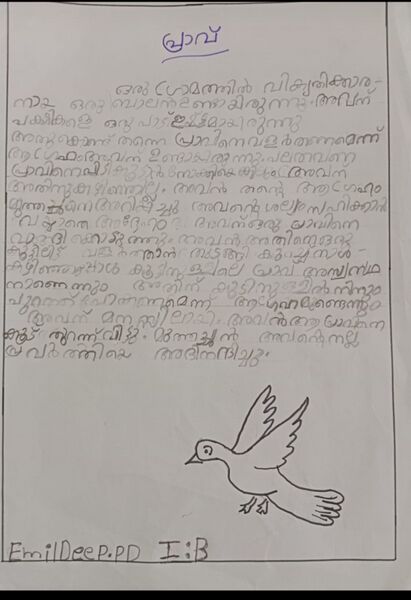 പ്രാവ്
ഒരു ഗ്രാമത്തിൽ വികൃതിക്കാര-
നായ ഒരു ബാലൻ ഉണ്ടായിരുന്നു. അവന്
പക്ഷികളെ ഒരുപാട് ഇഷ്ടമായിരുന്നു
അതുകൊണ്ട് തന്നെ പ്രാവിനെ വളർത്തണമെന്ന്
ആഗ്രഹം അവന് ഉണ്ടായിരുന്നു. പലതവണ
പ്രാവിനെ പിടികൂടാൻ നോക്കിയെങ്കിലും അവന്
അതിനു കഴിഞ്ഞില്ല. അവൻ തന്റെ ആഗ്രഹം
മുത്തച്ഛനെ അറിയിച്ചു. അവന്റെ ശല്യം സഹിക്കാൻ
വയ്യാതെ അദ്ദേഹം അവന് ഒരു പ്രാവിനെ
കൊടുത്തു. അവൻ അതിനെ ഒരു
കൂട്ടിലിട്ട് വളർത്താൻ തുടങ്ങി കുറച്ച് നാൾ
കഴിഞ്ഞപ്പോൾ കൂട്ടിനുള്ളിലെ പ്രാവ് അസ്വസ്ഥ
നാണെന്നും അതിന് കൂട്ടിനുള്ളിൽ നിന്നും
പുറത്ത് പോകണമെന്ന് ആഗ്രഹമുണ്ടെന്നും
അവന് മനസ്സിലായി. അവൻ ആ പ്രാവിനെ
കൂട് തുറന്ന് വിട്ടു. മുത്തച്ഛൻ അവന്റെ നല്ല
പ്രവർത്തിയെ അഭിനന്ദിച്ചു.
EmilDeep.PD I:B